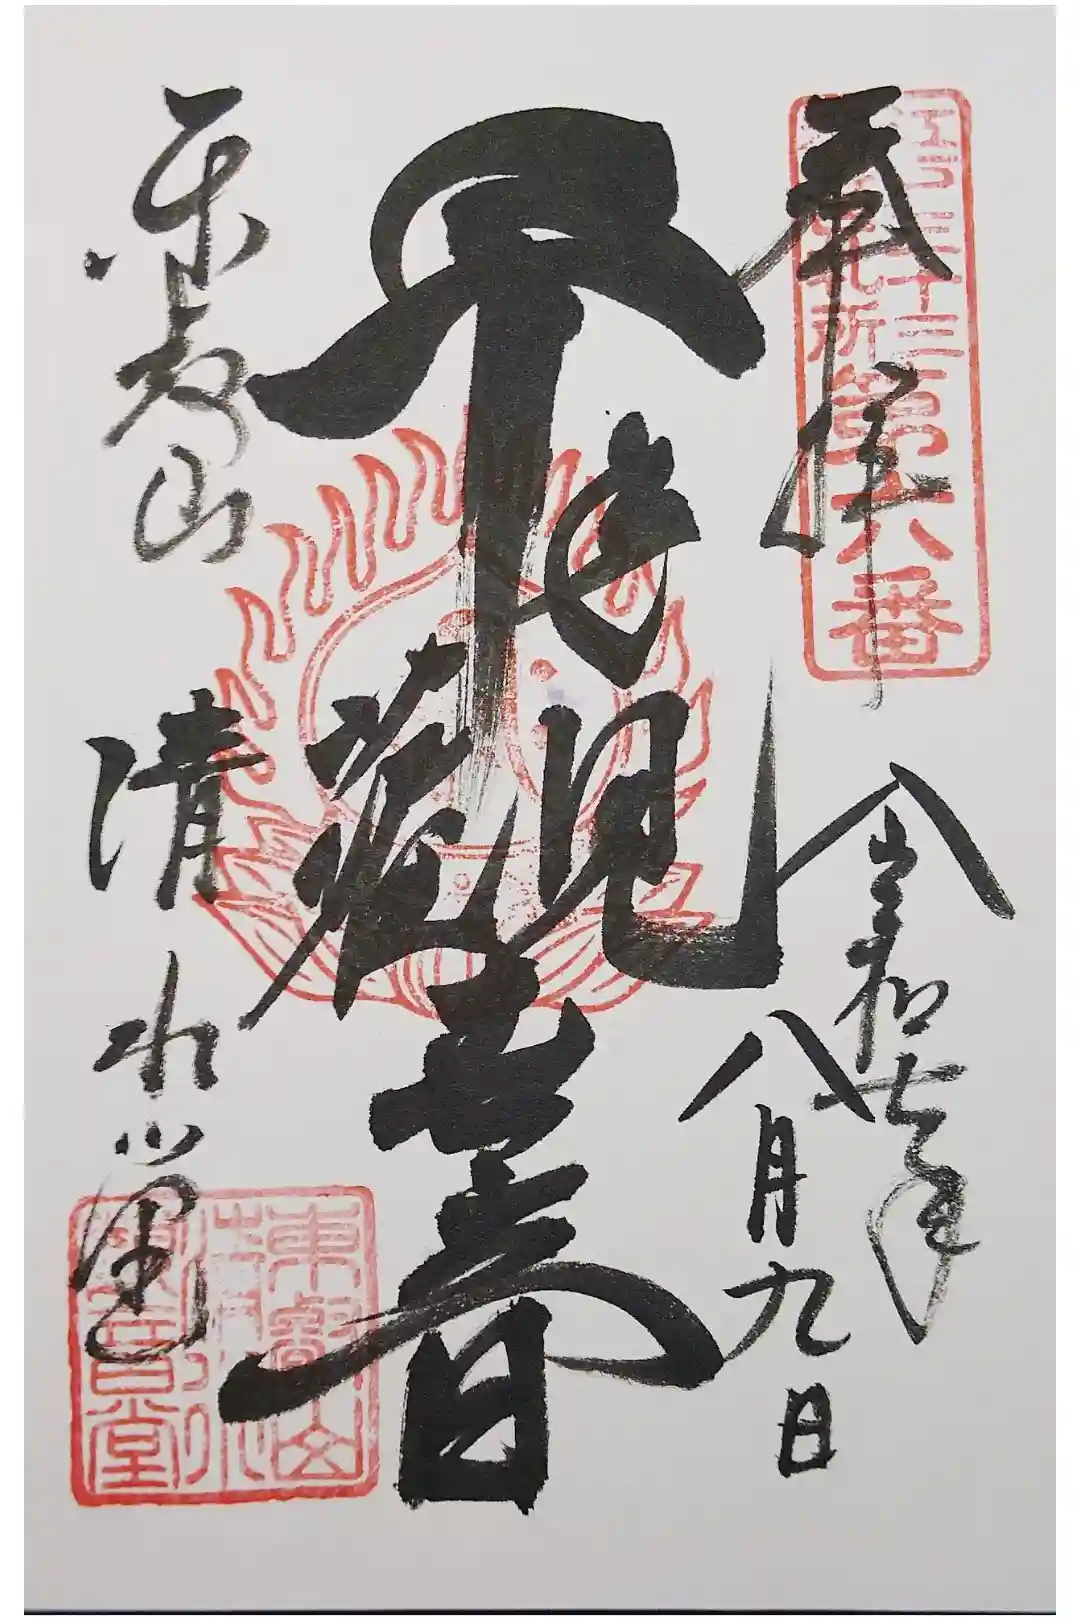 江戸三十三
札所
第六番
奉拝
令和七年
八月九日
千手
観世音
東叡山
清水堂
東叡山
清水
観音堂